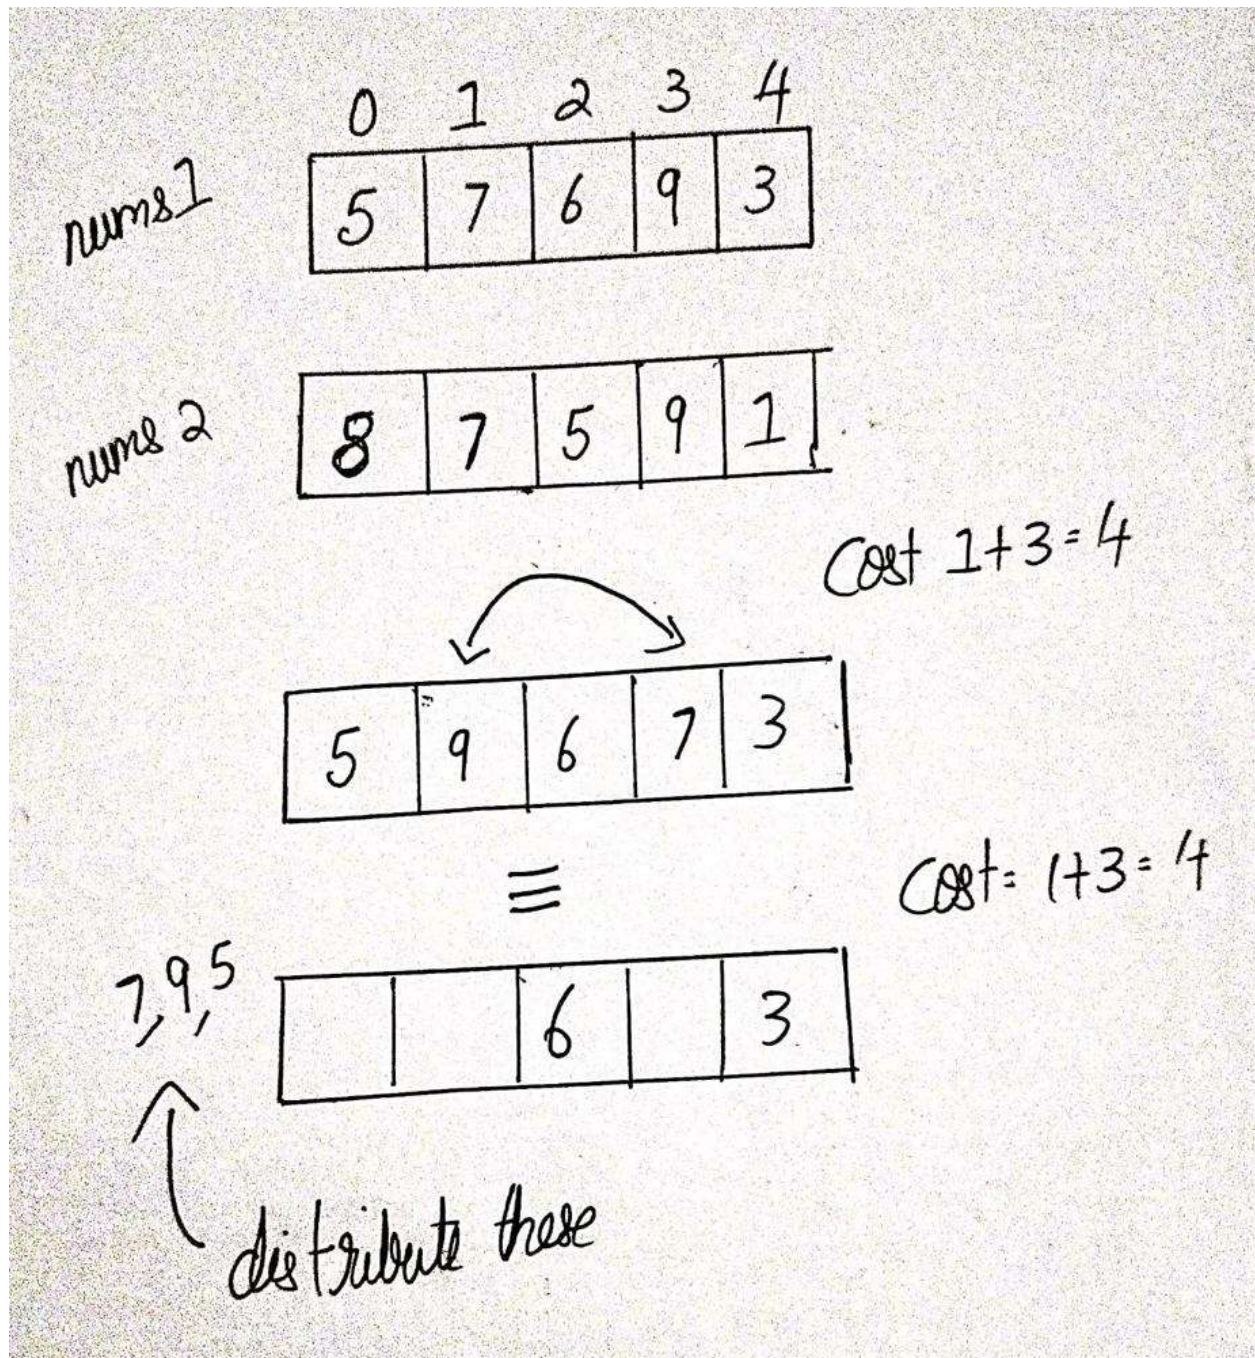 0 1 2 3 4
nums1 5 7 6 9 3
nums 2 8 7 5 9 1
Cost 1+3=4
5 9 6 7 3
≡
Cost= 1+3=4
7,9,5 6 3
distribute these